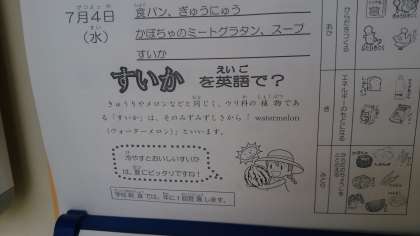 7月4日
(水)
食パン、ぎゅうにゅう
かぼちゃのミートグラタン、スープ
すいか
すいか を英語で?
えいご
きゅうりやメロンなどと同じく、ウリ科の植物であ
る「すいか」は、そのみずみずしさから「watermelon
(ウォーターメロン)」といいます。
冷やすとおいしいすいか
は、夏にピッタリですね!
あか
き
エネルギーのもとになる
みどり